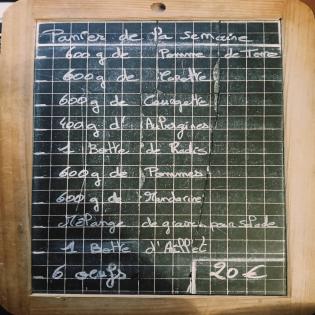 Panier de la semaine
600g de Pomme de Terre
600g de Carotte
600g de Courgette
400g d' Aubergines
1 Botte de Radis
600g de Pommes
600g de Mandarine
Mélange de graines pour salade
1 Botte d'Aillet
6 oeufs 20€